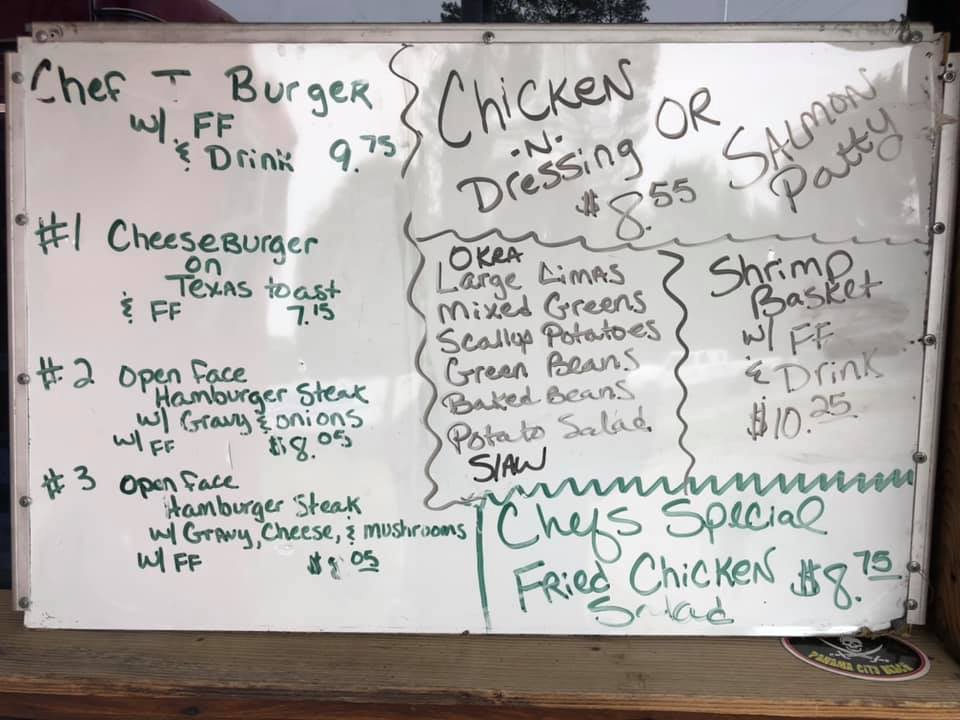 Chef T Burger
w/ FF
& Drink 9.75
#1 Cheeseburger
on
Texas toast
& FF 7.15
#2 Open Face
Hamburger Steak
w/ Gravy & onions
w/ FF $8.05
#3 Open Face
Hamburger Steak
w/ Gravy, Cheese, & mushrooms
w/ FF $8.05
Chicken
-N-
Dressing
OR
Salmon
Patty
$8.55
Okra
Large Limas
Mixed Greens
Scallys Potatoes
Green Beans
Baked Beans
Potato Salad
Slaw
Shrimp
Basket
w/ FF
& Drink
$10.25
Chefs Special
Fried Chicken $8.75
Salad
PANAMA CITY BEACH